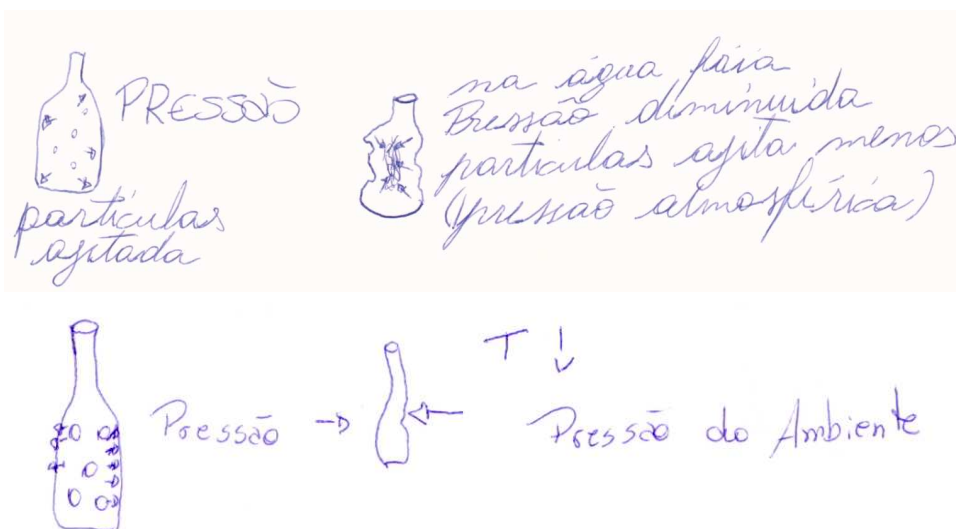 PRESSÃO
particulas
agitada
na água fria
Pressão diminuida
particulas agita menos
(pressão atmosférica)
Pressão
T
Pressão do Ambiente